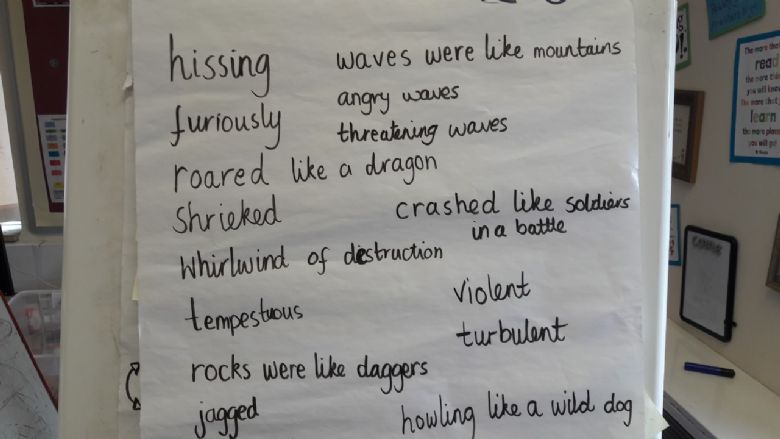 hissing
waves were like mountains
angry waves
furiously
threatening waves
roared like a dragon
shrieked
crashed like soldiers
in a battle
whirlwind of destruction
violent
tempestuous
turbulent
rocks were like daggers
jagged
howling like a wild dog
The more that
read
the more thin
you will know
The more that y
learn
the more place
you will go!